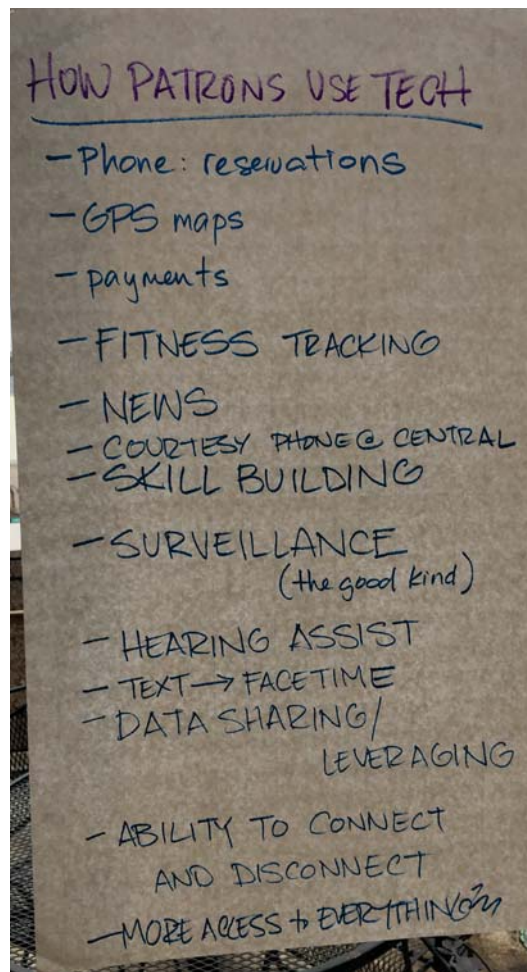 HOW PATRONS USE TECH
- Phone: reservations
- GPS maps
- payments
- FITNESS TRACKING
- NEWS
- COURTESY PHONE @ CENTRAL
- SKILL BUILDING
- SURVEILLANCE
(the good kind)
- HEARING ASSIST
- TEXT → FACETIME
- DATA SHARING/
LEVERAGING
- ABILITY TO CONNECT
AND DISCONNECT
- MORE ACCESS to EVERYTHING